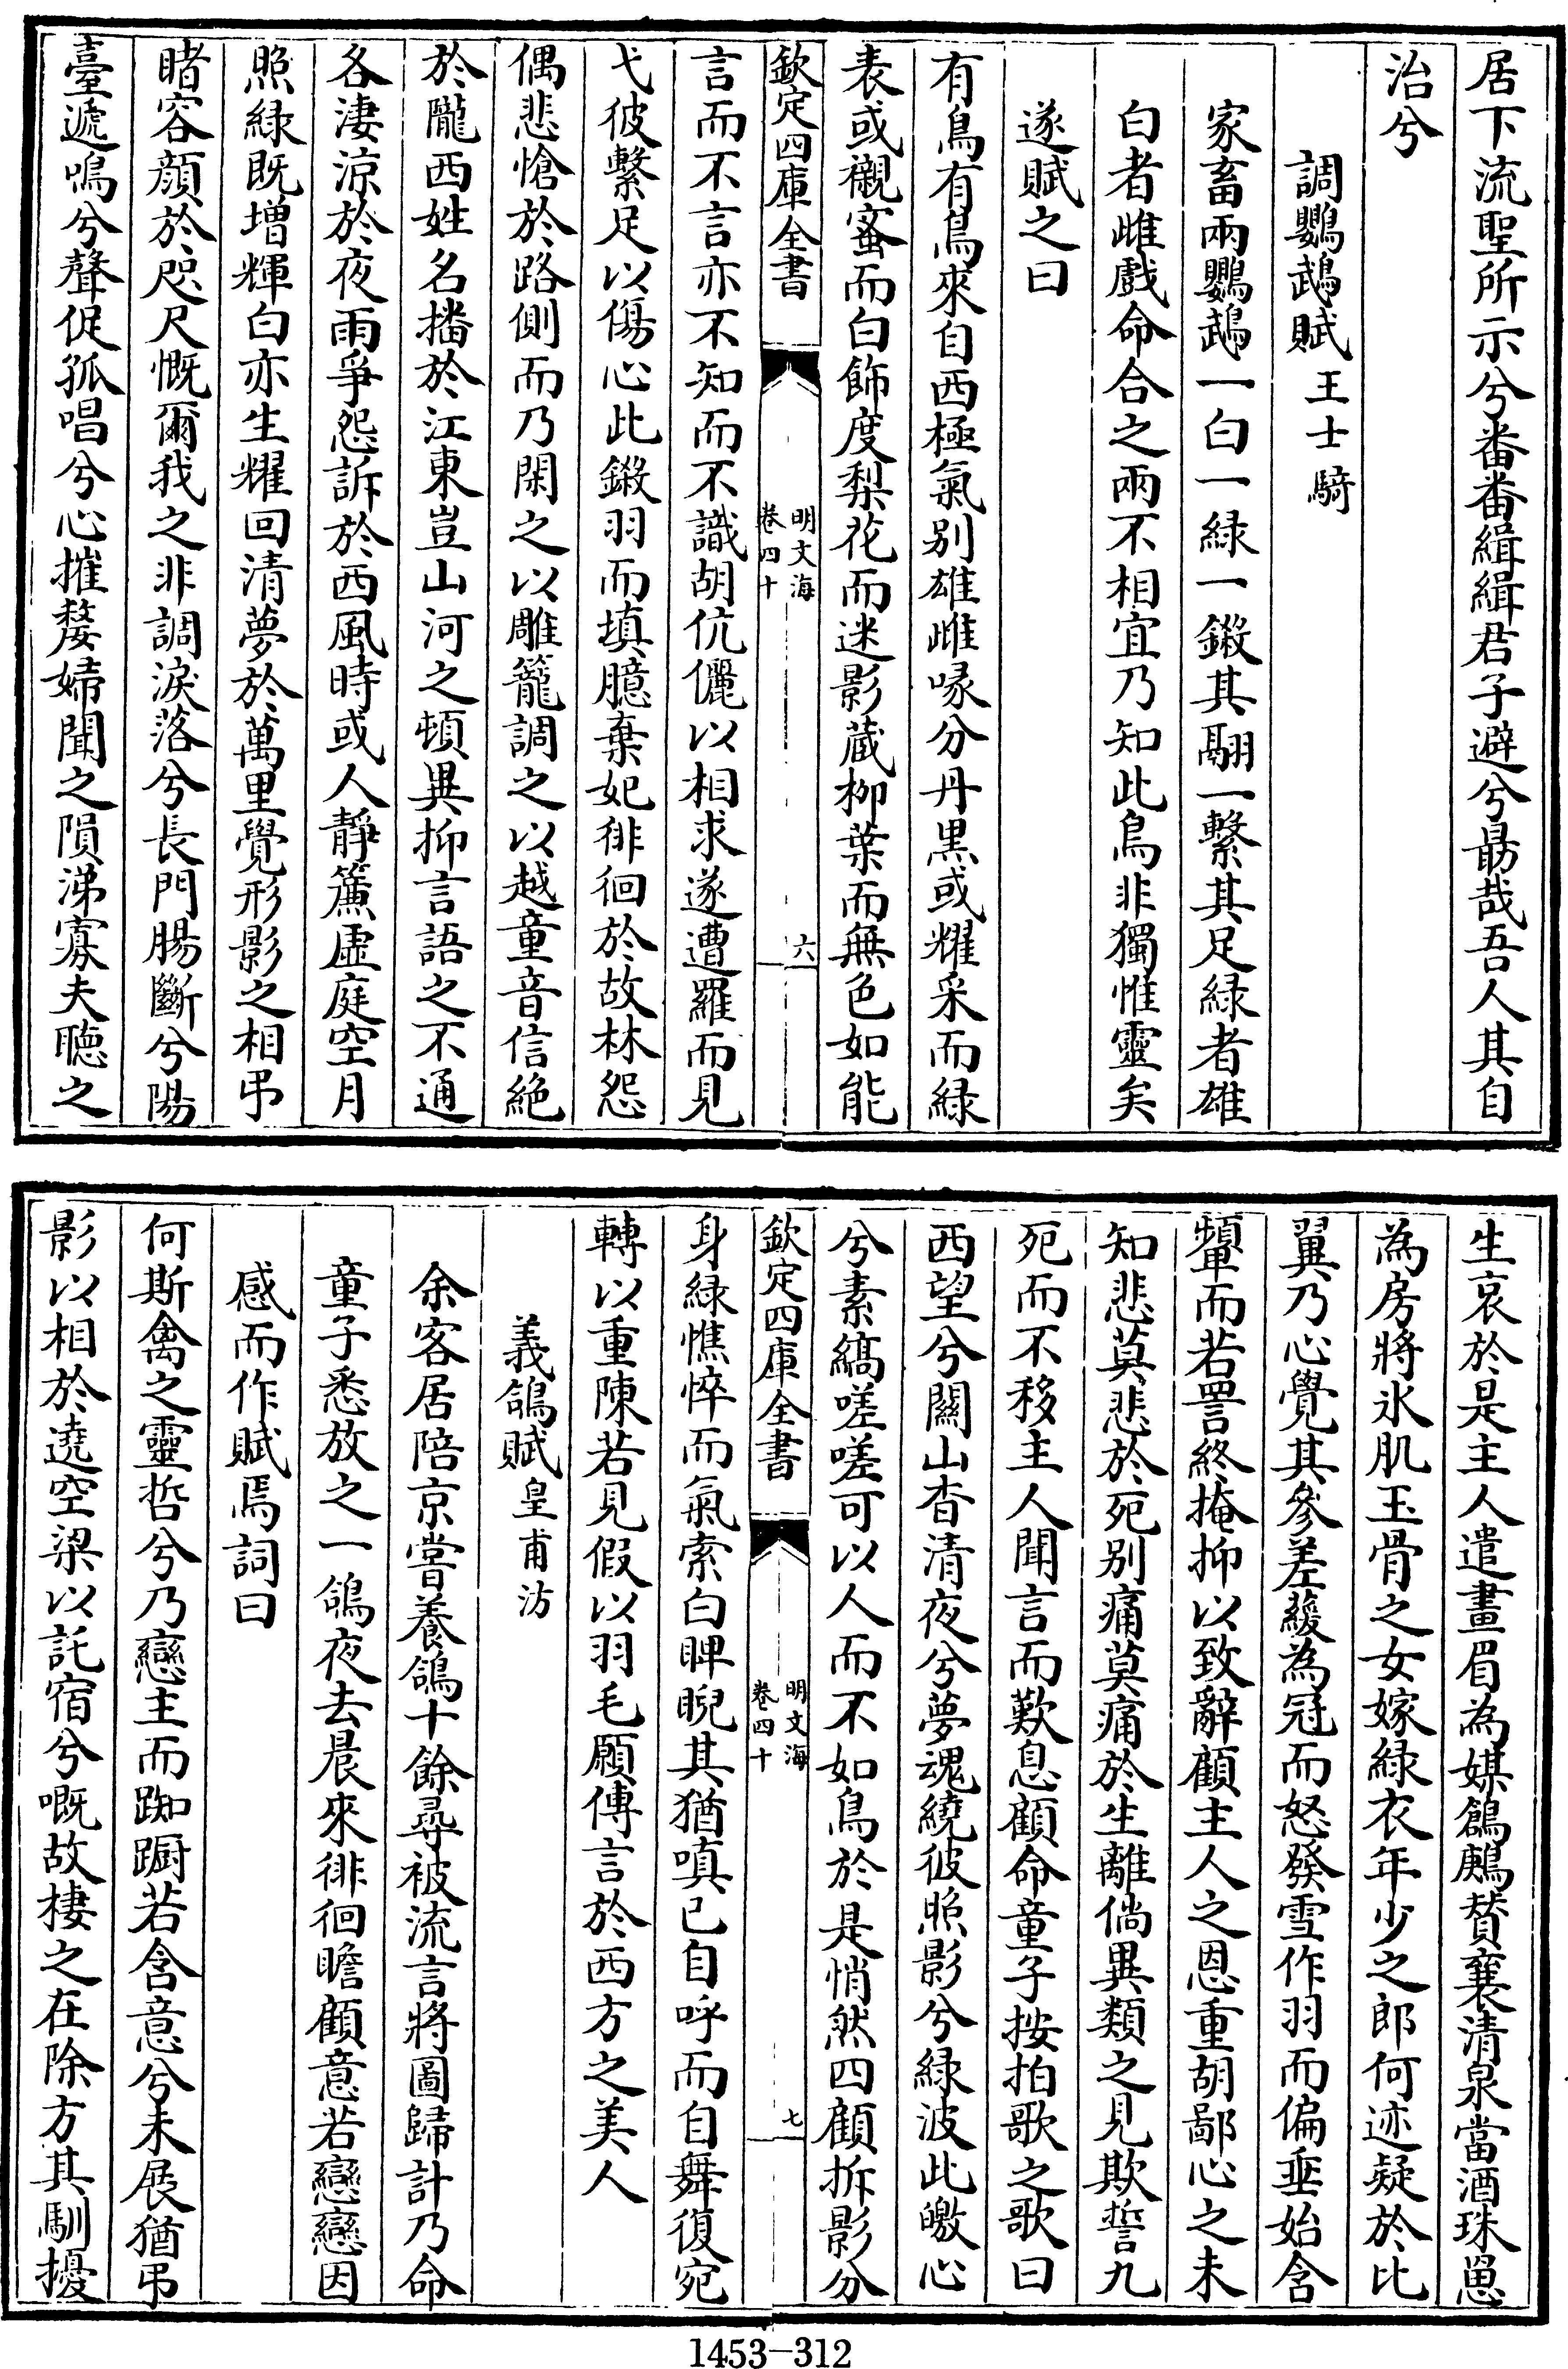 居下流聖所示兮番番緝緝君子避兮勗哉吾人其自
治兮
調鸚鵡賦 王士騎
家畜兩鸚鵡一白一緑一鎩其翮一繫其足緑者雄
白者雌戲命合之兩不相宜乃知此鳥非獨惟靈矣
遂賦之曰
有鳥有鳥來自西極氣别雄雌喙分丹黒或耀采而緑
表或襯蜜而白飾度梨花而迷影蔵柳葉而無色如能
欽定四庫全書
明文海
卷四十
六
言而不言亦不知而不識胡伉儷以相求遂遭羅而見
弋彼繫足以傷心此鎩羽而填臆棄妃徘徊於故林怨
偶悲愴於路側而乃閑之以雕籠調之以越童音信絶
於隴西姓名播於江東豈山河之頓異抑言語之不通
各淒涼於夜雨爭怨訴於西風時或人靜簾虛庭空月
照緑既增輝白亦生耀回清夢於萬里覺形影之相弔
睹容顔於咫尺慨爾我之非調淚落兮長門腸斷兮陽
臺遞鳴兮聲促孤唱兮心摧嫠婦聞之隕涕寡夫聴之
生哀於是主人遣畫眉為媒鶬鶊賛襄清泉當酒珠罳
為房將氷肌玉骨之女嫁緑衣年少之郎何迹疑於比
翼乃心覺其參差蘰為冠而怒發雪作羽而偏垂始含
顰而若詈終掩抑以致辭顧主人之恩重胡鄙心之未
知悲莫悲於死别痛莫痛於生離倘異類之見欺誓九
死而不移主人聞言而歎息顧命童子按拍歌之歌曰
西望兮關山杳清夜兮夢魂繞彼照影兮緑波此皦心
兮素縞嗟嗟可以人而不如鳥於是悄然四顧拆影分
欽定四庫全書
明文海
卷四十
七
身緑憔悴而氣索白睥睨其猶嗔已自呼而自舞復宛
轉以重陳若見假以羽毛願傳言於西方之美人
義鴿賦 皇甫汸
余客居陪京嘗養鴿十餘尋被流言將圖歸計乃命
童子悉放之一鴿夜去晨來徘徊瞻顧意若戀戀因
感而作賦焉詞曰
何斯禽之靈哲兮乃戀主而踟蹰若含意兮未展猶弔
影以相於遶空梁以託宿兮嘅故棲之在除方其馴擾
1453-312